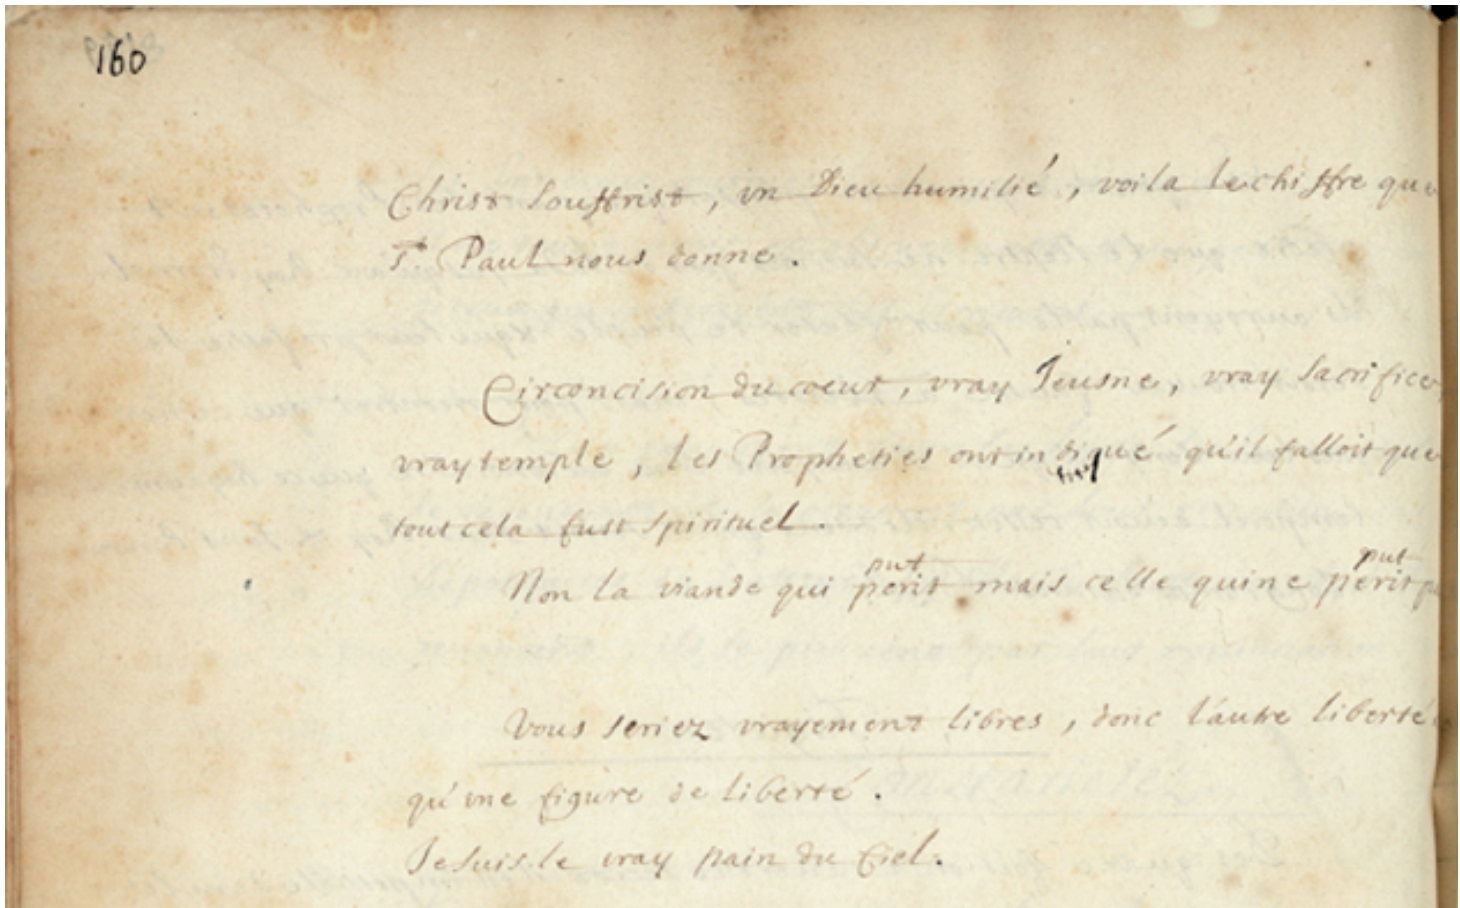 160
Christ Souffrist, vn Dieu humilié, voila le chiffre que
St Paul nous donne.
Circoncision du coeur, vray Jeusne, vray sacrifice,
vray temple, les Propheties ont indiqué qu'il falloit que
tout cela fust spirituel.
put put
Non la viande qui perit mais celle qui ne perit
Vous seriez vrayement libres, donc l'autre liberté
qu'vne figure de liberté.
Je suis le vray pain du Ciel.